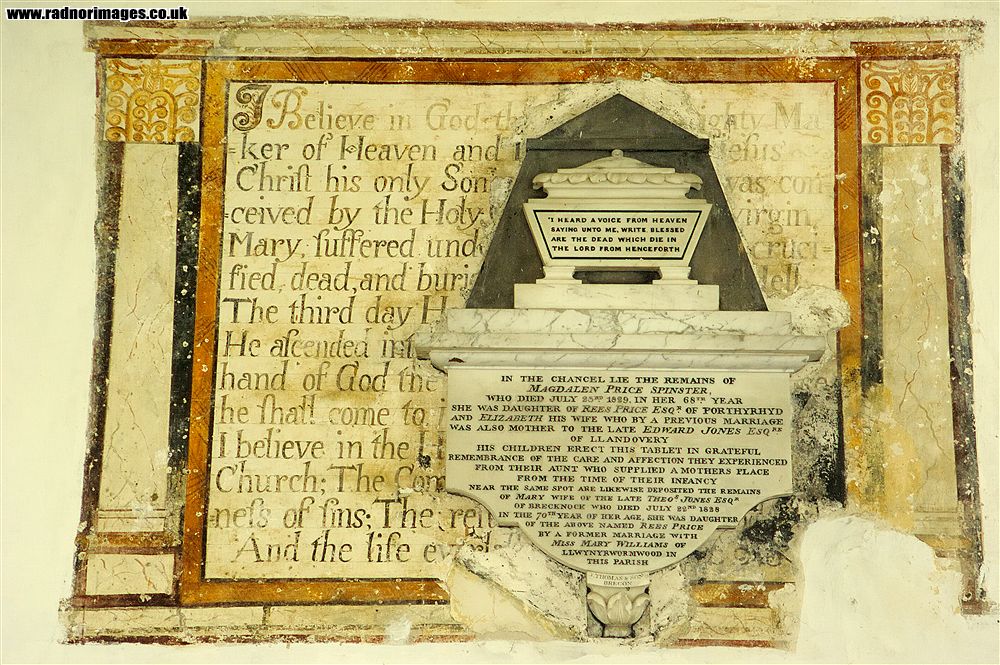 www.radnorimages.co.uk
I Believe in God th ighty Ma
ker of Heaven and Jesus
Christ his only Son was con
ceived by the Holy virgin
Mary, suffered und cruci
fied, dead, and buri Hell
The third day H
He ascended in
hand of God the
he shall come to
I believe in the H
Church; The Com
ness of sins; The re
And the life ev
"I HEARD A VOICE FROM HEAVEN
SAYING UNTO ME, WRITE, BLESSED
ARE THE DEAD WHICH DIE IN
THE LORD FROM HENCEFORTH
IN THE CHANCEL LIE THE REMAINS OF
MAGDALEN PRICE SPINSTER,
WHO DIED JULY 25ND 1829. IN HER 68TH YEAR
SHE WAS DAUGHTER OF REES PRICE ESQR OF PORTHYRHYD
AND ELIZABETH HIS WIFE WHO BY A PREVIOUS MARRIAGE
WAS ALSO MOTHER TO THE LATE EDWARD JONES ESQRE
OF LLANDOVERY
HIS CHILDREN ERECT THIS TABLET IN GRATEFUL
REMEMBRANCE OF THE CARE AND AFFECTION THEY EXPERIENCED
FROM THEIR AUNT WHO SUPPLIED A MOTHERS PLACE
FROM THE TIME OF THEIR INFANCY
NEAR THE SAME SPOT ARE LIKEWISE DEPOSITED THE REMAINS
OF MARY WIFE OF THE LATE THEOS JONES ESQR
OF BRECKNOCK WHO DIED JULY 22ND 1828
IN THE 70TH YEAR OF HER AGE, SHE WAS DAUGHTER
OF THE ABOVE NAMED REES PRICE
BY A FORMER MARRIAGE WITH
MISS MARY WILLIAMS OF
LLWYNYRWORMWOOD IN
THIS PARISH
J. THOMAS & SON
BRECON